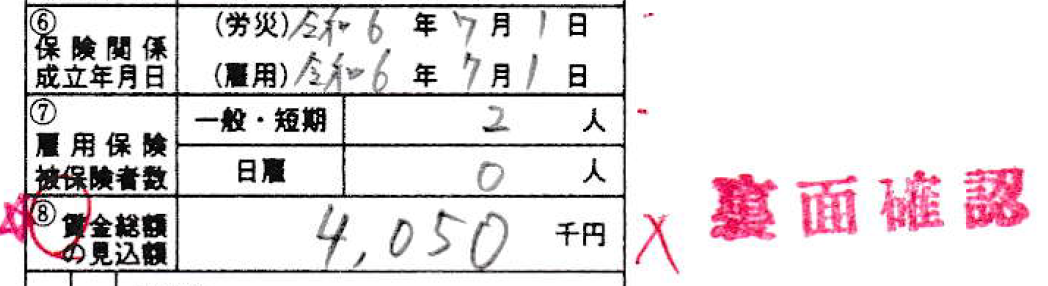 ⑥
保険関係
成立年月日
(労災)令和6年7月1日
(雇用)令和6年7月1日
⑦
雇用保険
被保険者数
一般・短期 2人
日雇 0人
⑧賃金総額
の見込額
4,050千円
裏面確認